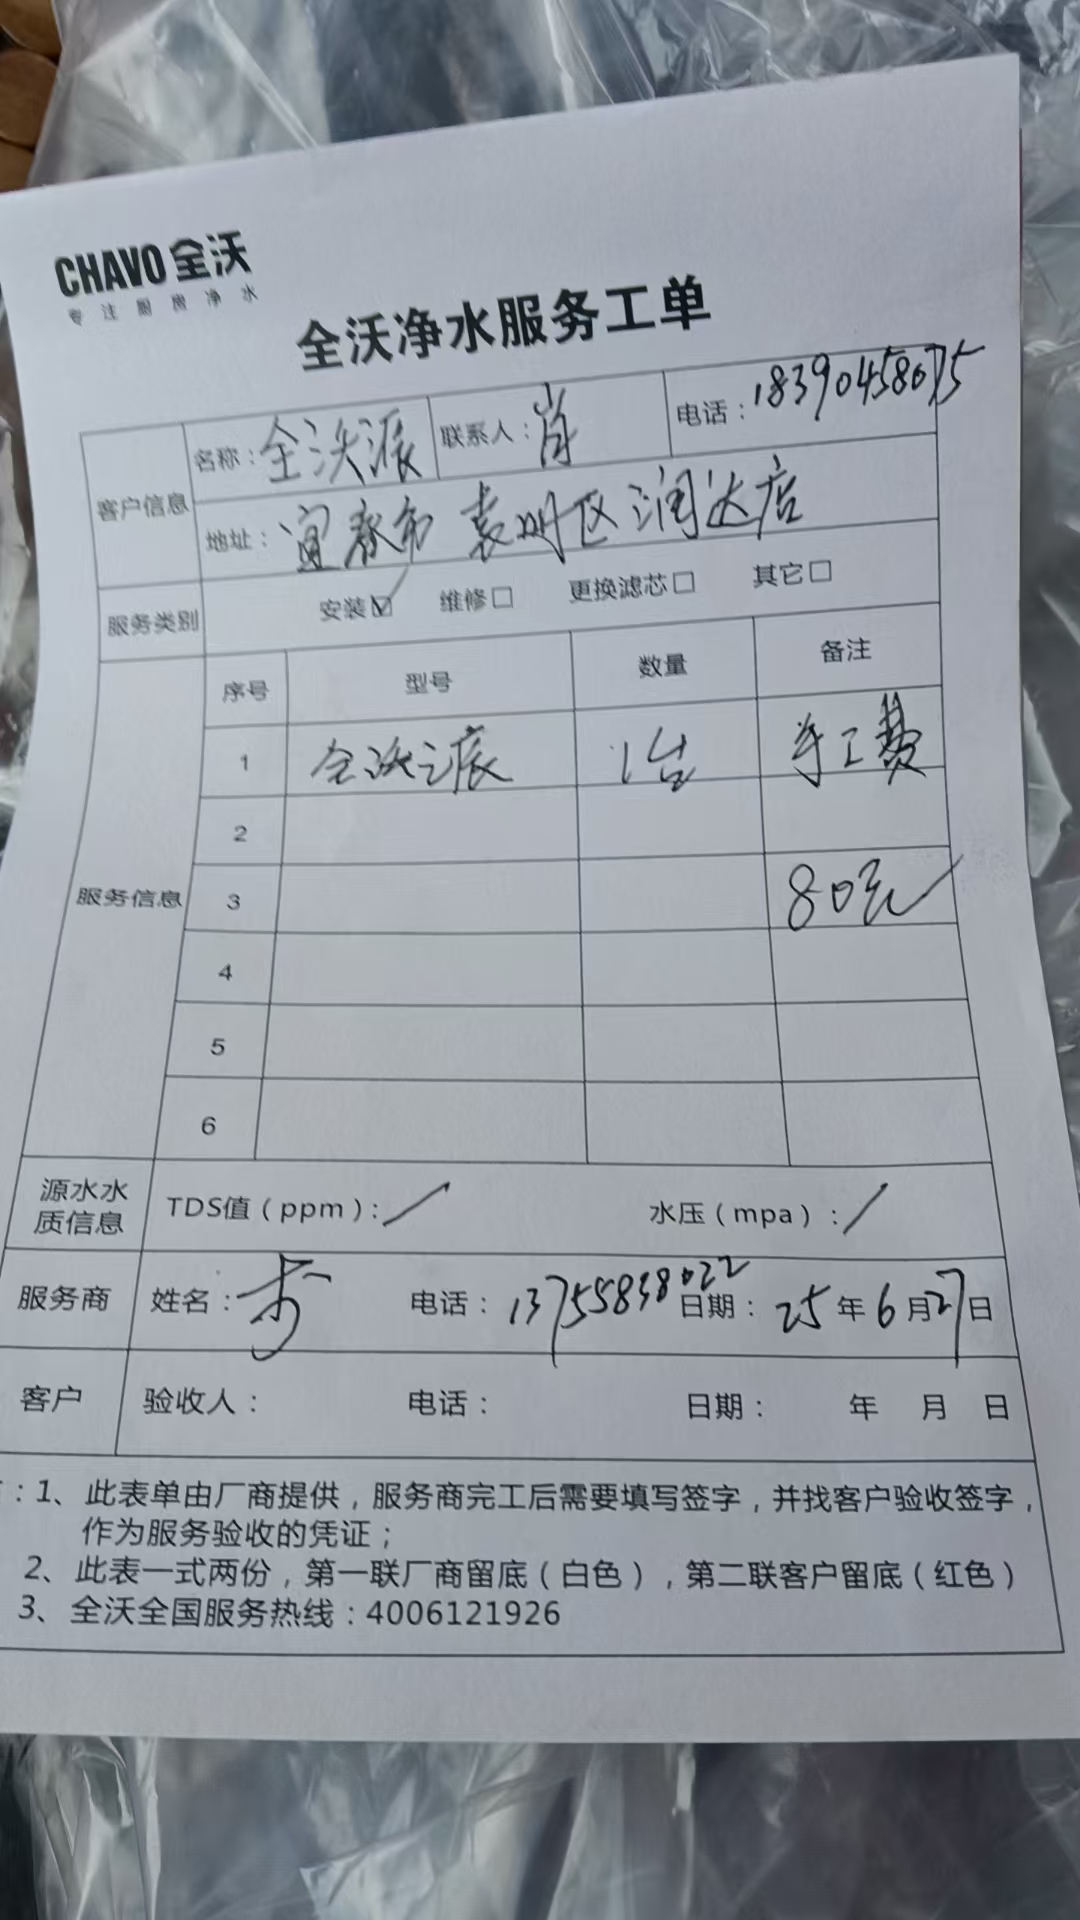 CHAVO 全沃
专注厨房净水
全沃净水服务工单
客户信息 名称：全沃派 联系人：肖 电话：18390458675
地址：宜春市袁州区润达店
服务类别 安装☑ 维修□ 更换滤芯□ 其它□
服务信息 序号 型号 数量 备注
1 全沃 1台 手工费
2
3 80元
4
5
6
源水水质信息 TDS值（ppm）：/ 水压（mpa）：/
服务商 姓名： 电话：13755838022 日期：25年6月27日
客户 验收人： 电话： 日期： 年 月 日
：1、此表单由厂商提供，服务商完工后需要填写签字，并找客户验收签字，
作为服务验收的凭证；
2、此表一式两份，第一联厂商留底（白色），第二联客户留底（红色）
3、全沃全国服务热线：4006121926